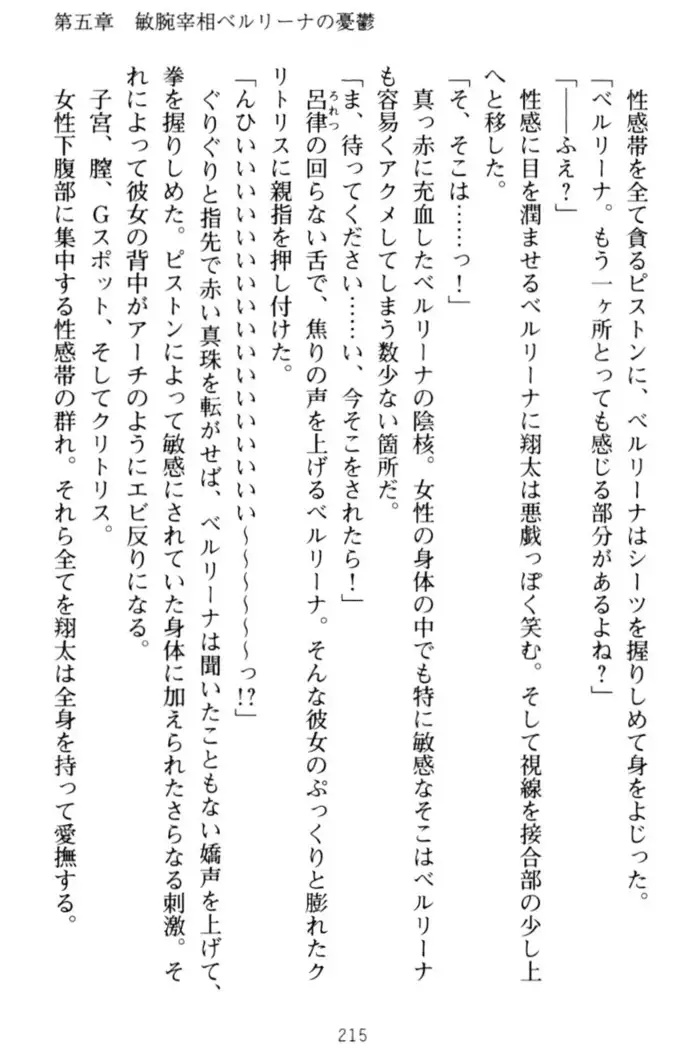 第五章　敏腕宰相ベルリーナの憂鬱
性感帯を全て貪るピストンに、ベルリーナはシーツを握りしめて身をよじった。
「ベルリーナ。もう一ヶ所とっても感じる部分があるよね？」
「――ふえ？」
性感に目を潤ませるベルリーナに翔太は悪戯っぽく笑む。そして視線を接合部の少し上
へと移した。
「そ、そこは……っ！」
真っ赤に充血したベルリーナの陰核。女性の身体の中でも特に敏感なそこはベルリーナ
も容易くアクメしてしまう数少ない箇所だ。
「ま、待ってください……い、今そこをされたら！」
呂律の回らない舌で、焦りの声を上げるベルリーナ。そんな彼女のぷっくりと膨れたク
ろれつ
リトリスに親指を押し付けた。
「んひいいいいいいいいいいいいいいいい～～～～～～っ!?」
ぐりぐりと指先で赤い真珠を転がせば、ベルリーナは聞いたこともない嬌声を上げて、
拳を握りしめた。ピストンによって敏感にされていた身体に加えられたさらなる刺激。そ
れによって彼女の背中がアーチのようにエビ反りになる。
子宮、膣、Ｇスポット、そしてクリトリス。
女性下腹部に集中する性感帯の群れ。それら全てを翔太は全身を持って愛撫する。
215